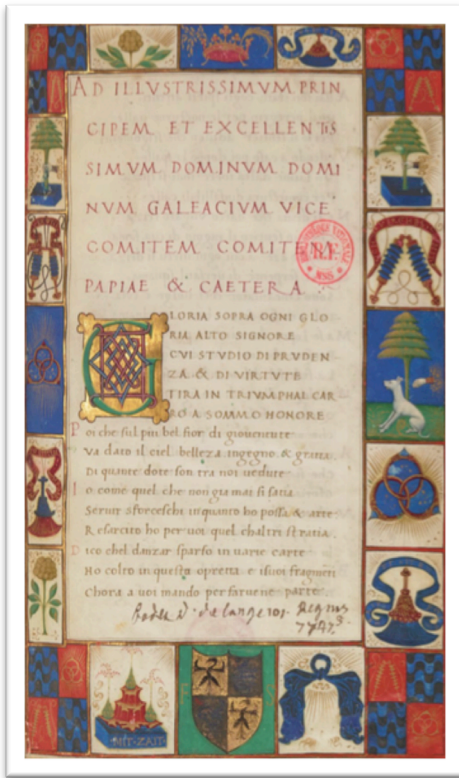 AD ILLVSTRISSIMVM PRIN
CIPEM ET EXCELLENTIS
SIMVM DOMINVM DOMI
NVM GALEACIVM VICE
COMITEM COMITEM
PAPIAE & CAETERA
GLORIA SOPRA OGNI GLO
RIA ALTO SIGNORE
CVI STVDIO DI PRVDEN
ZA & DI VIRTVTE
TIRA IN TRIVMPHAL CAR
RO A SOMMO HONORE
Poi che sul piu bel fior di giouentute
Va dato il ciel belleza ingegno & gratia
Di quante dote son tra noi uedute
Io come quel che non gia mai si satia
Seruir sforceschi in quanto ho possa & arte
Resarcito ho per uoi quel chaltri stratia
Dico chel danzar sparso in uarie carte
Ho colto in questa opretta e i suoi fragmenti
Chora a uoi mando per faruene parte
Regius
7747 3
R.F.
MSS
MIT ZAIT